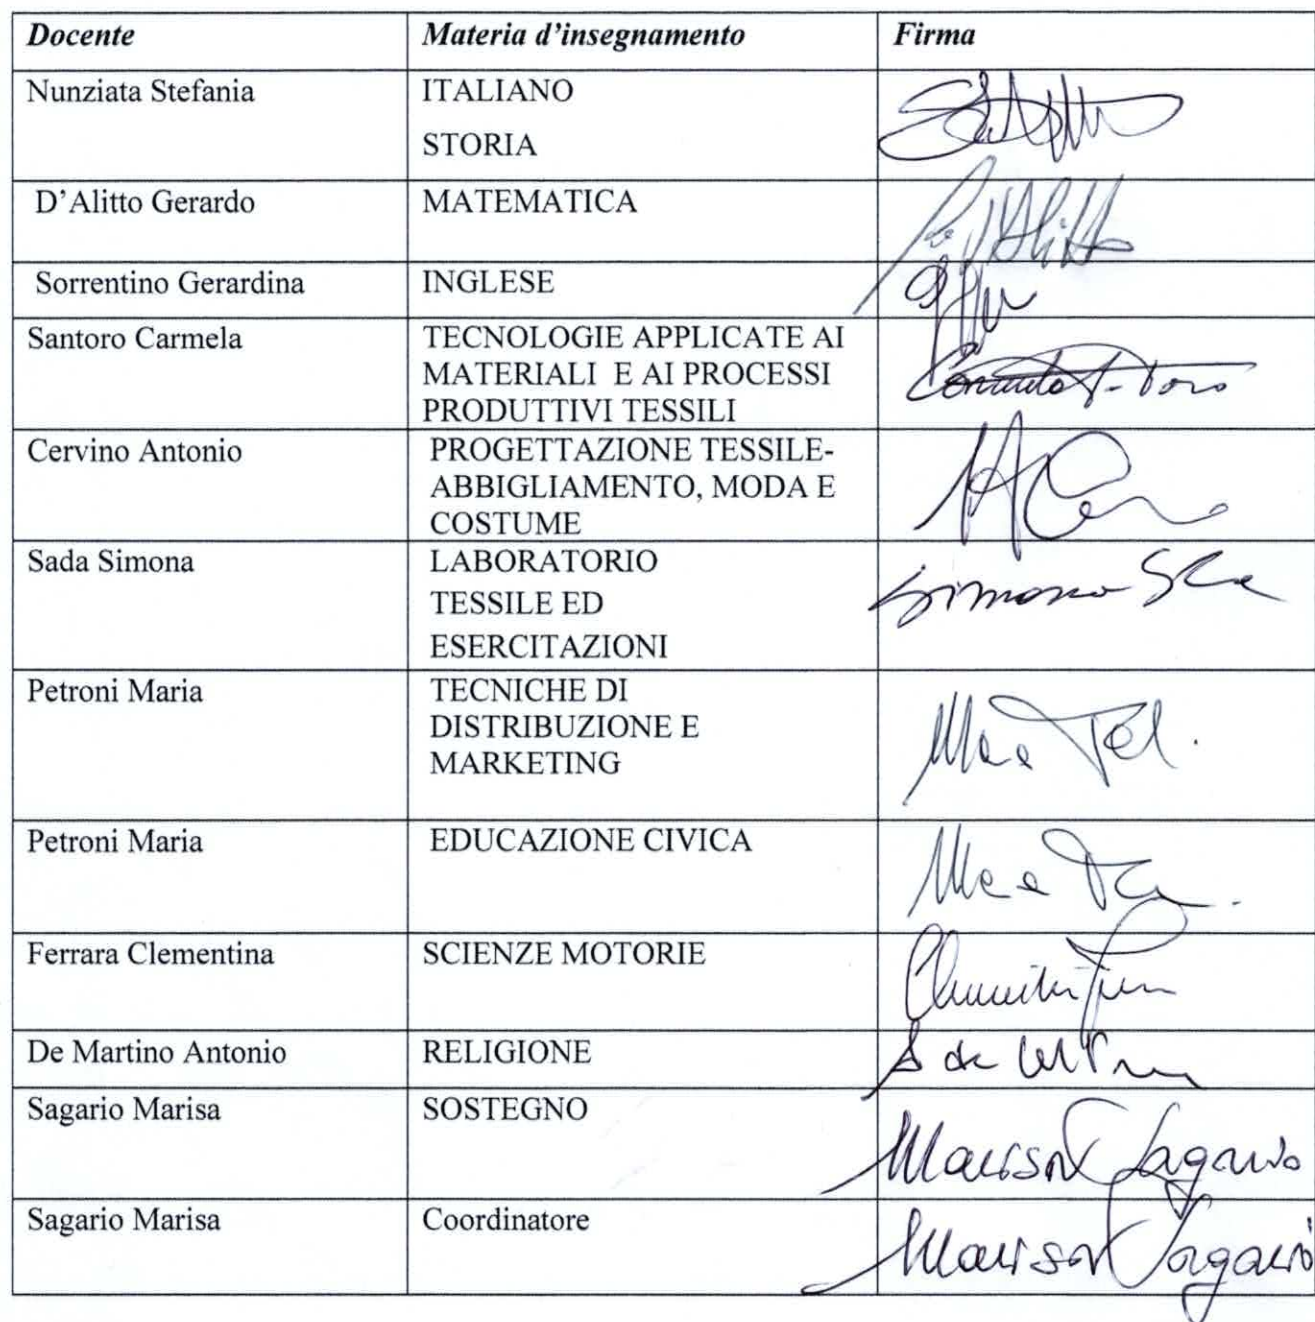 Docente Materia d'insegnamento Firma
Nunziata Stefania ITALIANO
STORIA
D'Alitto Gerardo MATEMATICA
Sorrentino Gerardina INGLESE
Santoro Carmela TECNOLOGIE APPLICATE AI
MATERIALI E AI PROCESSI
PRODUTTIVI TESSILI
Cervino Antonio PROGETTAZIONE TESSILE-
ABBIGLIAMENTO, MODA E
COSTUME
Sada Simona LABORATORIO
TESSILE ED
ESERCITAZIONI
Petroni Maria TECNICHE DI
DISTRIBUZIONE E
MARKETING
Petroni Maria EDUCAZIONE CIVICA
Ferrara Clementina SCIENZE MOTORIE
De Martino Antonio RELIGIONE
Sagario Marisa SOSTEGNO Marisa Sagario
Sagario Marisa Coordinatore Marisa Sagario